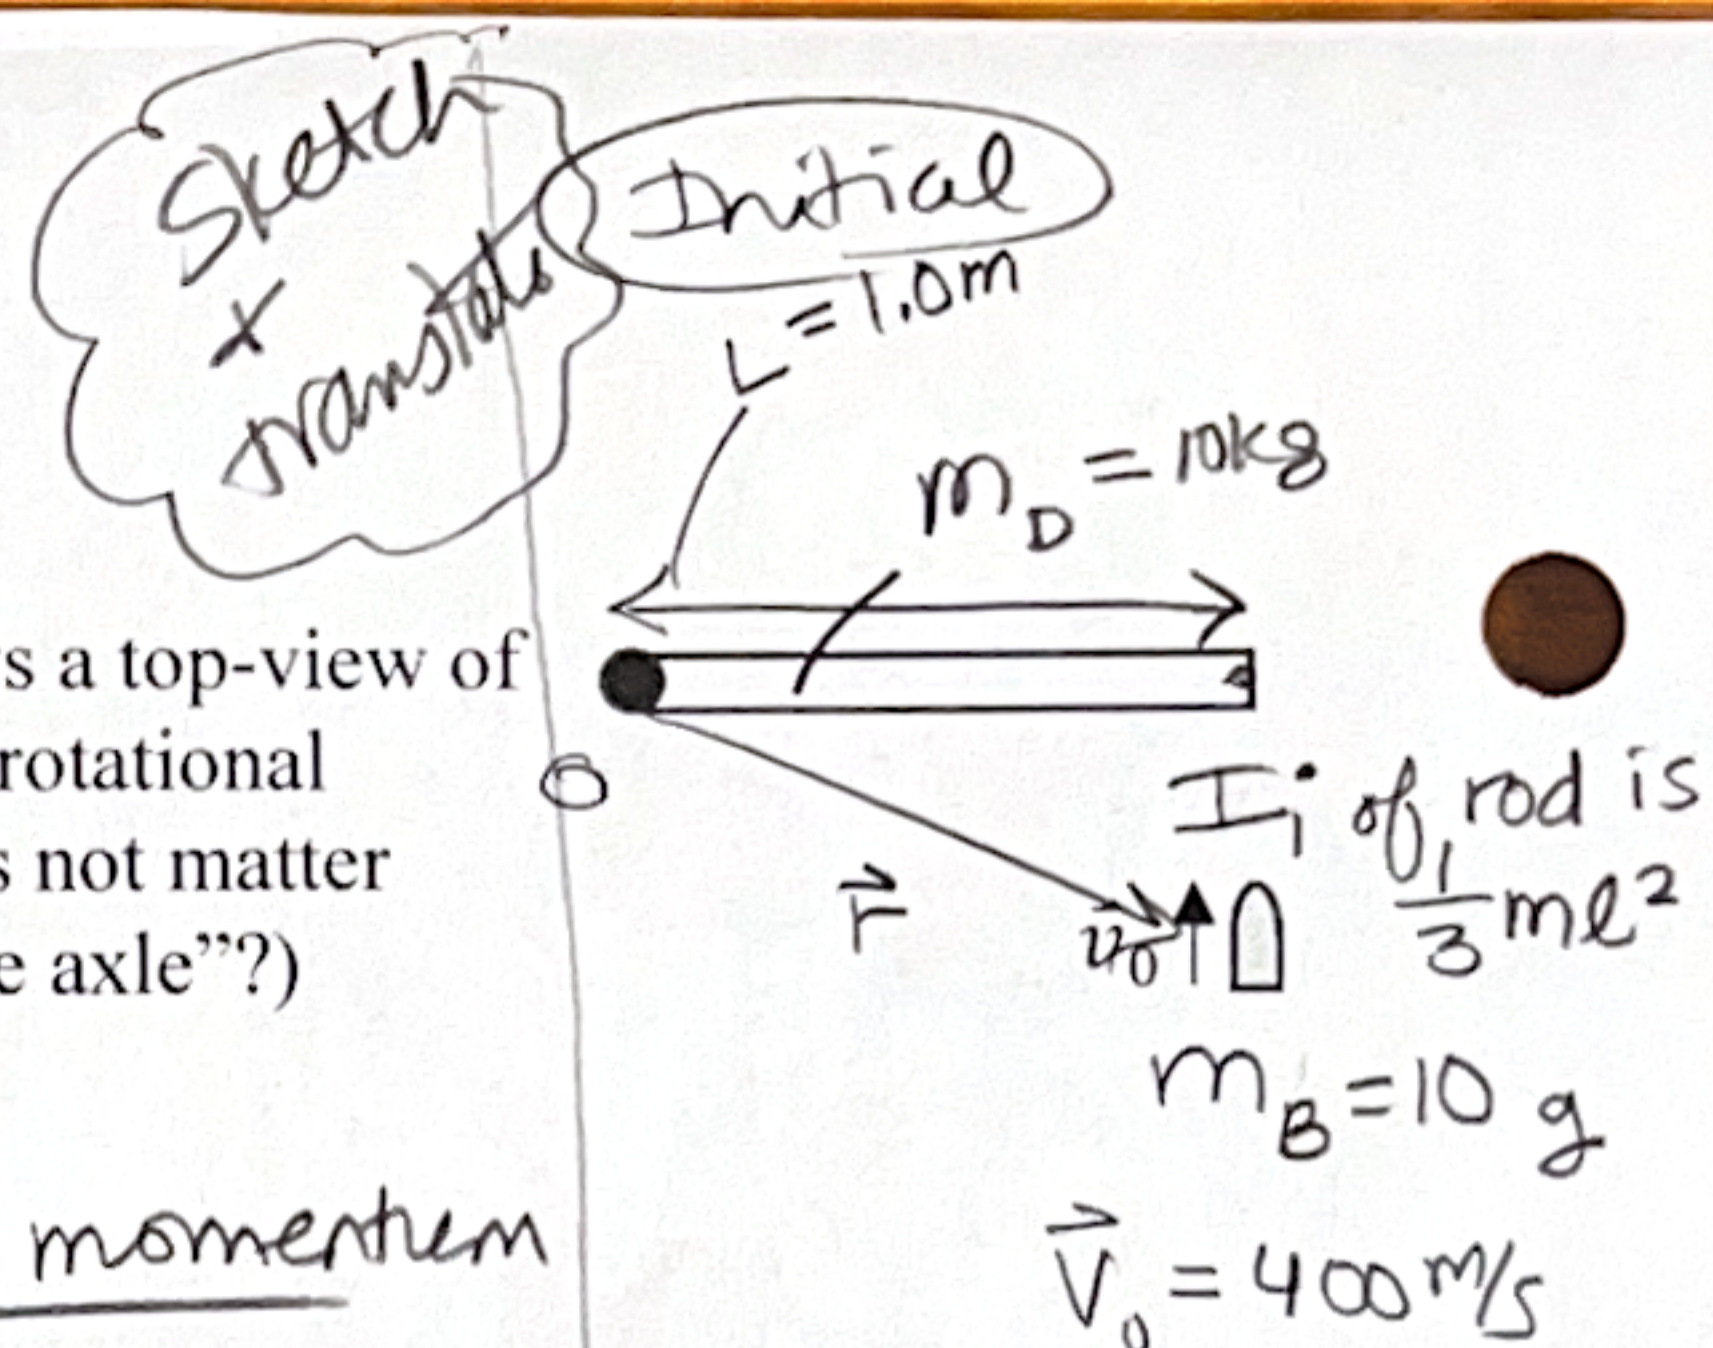 Sketch
+
translate
Initial
L = 1.0m
m_D = 10kg
s a top-view of
rotational
s not matter
e axle”?)
O
I_i of rod is
1/3 mℓ²
r⃗
v⃗_0
m_B = 10 g
momentum
V⃗_0 = 400 m/s